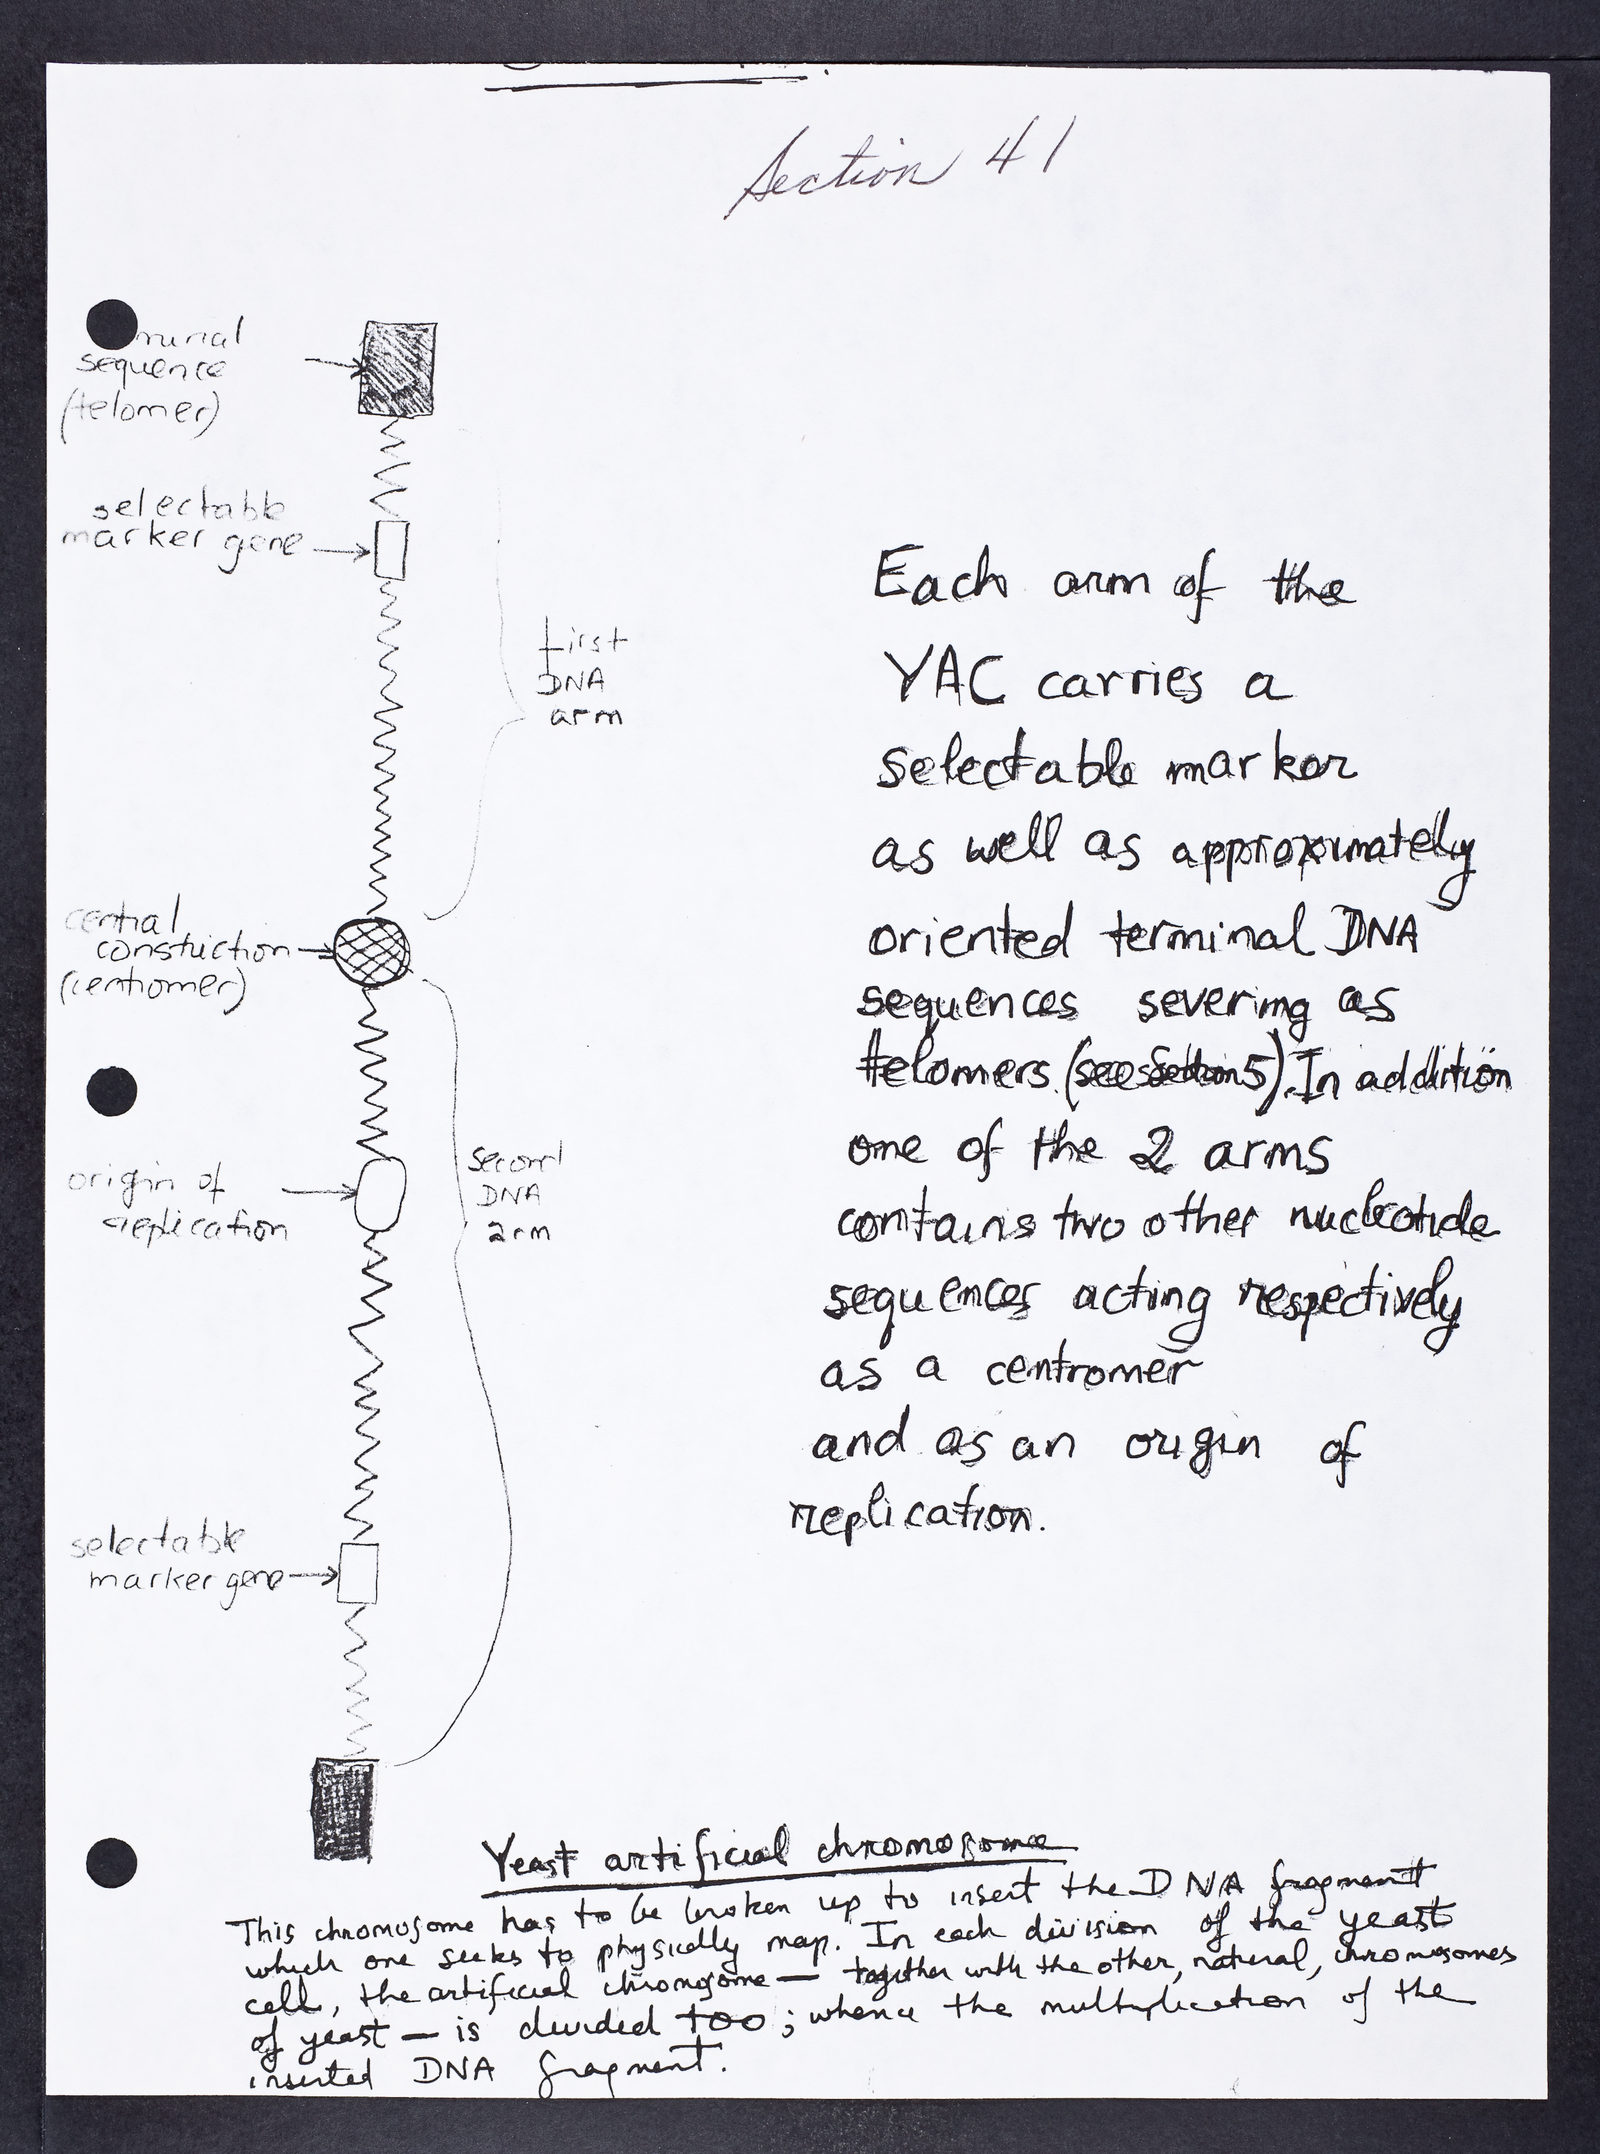 Section 41
minal
sequence
(telomer)
selectable
marker gene
first
DNA
arm
central
constriction
(centromer)
origin of
replication
second
DNA
arm
selectable
marker gene
Each arm of the
YAC carries a
selectable marker
as well as approximately
oriented terminal DNA
sequences severing as
telomers (see Section 5). In addition
one of the 2 arms
contains two other nucleotide
sequences acting respectively
as a centromer
and as an origin of
replication.
Yeast artificial chromosome
This chromosome has to be broken up to insert the DNA fragment
which one seeks to physically map. In each division of the yeast
cell, the artificial chromosome — together with the other, natural, chromosomes
of yeast — is divided too ; whence the multiplication of the
inserted DNA fragment.